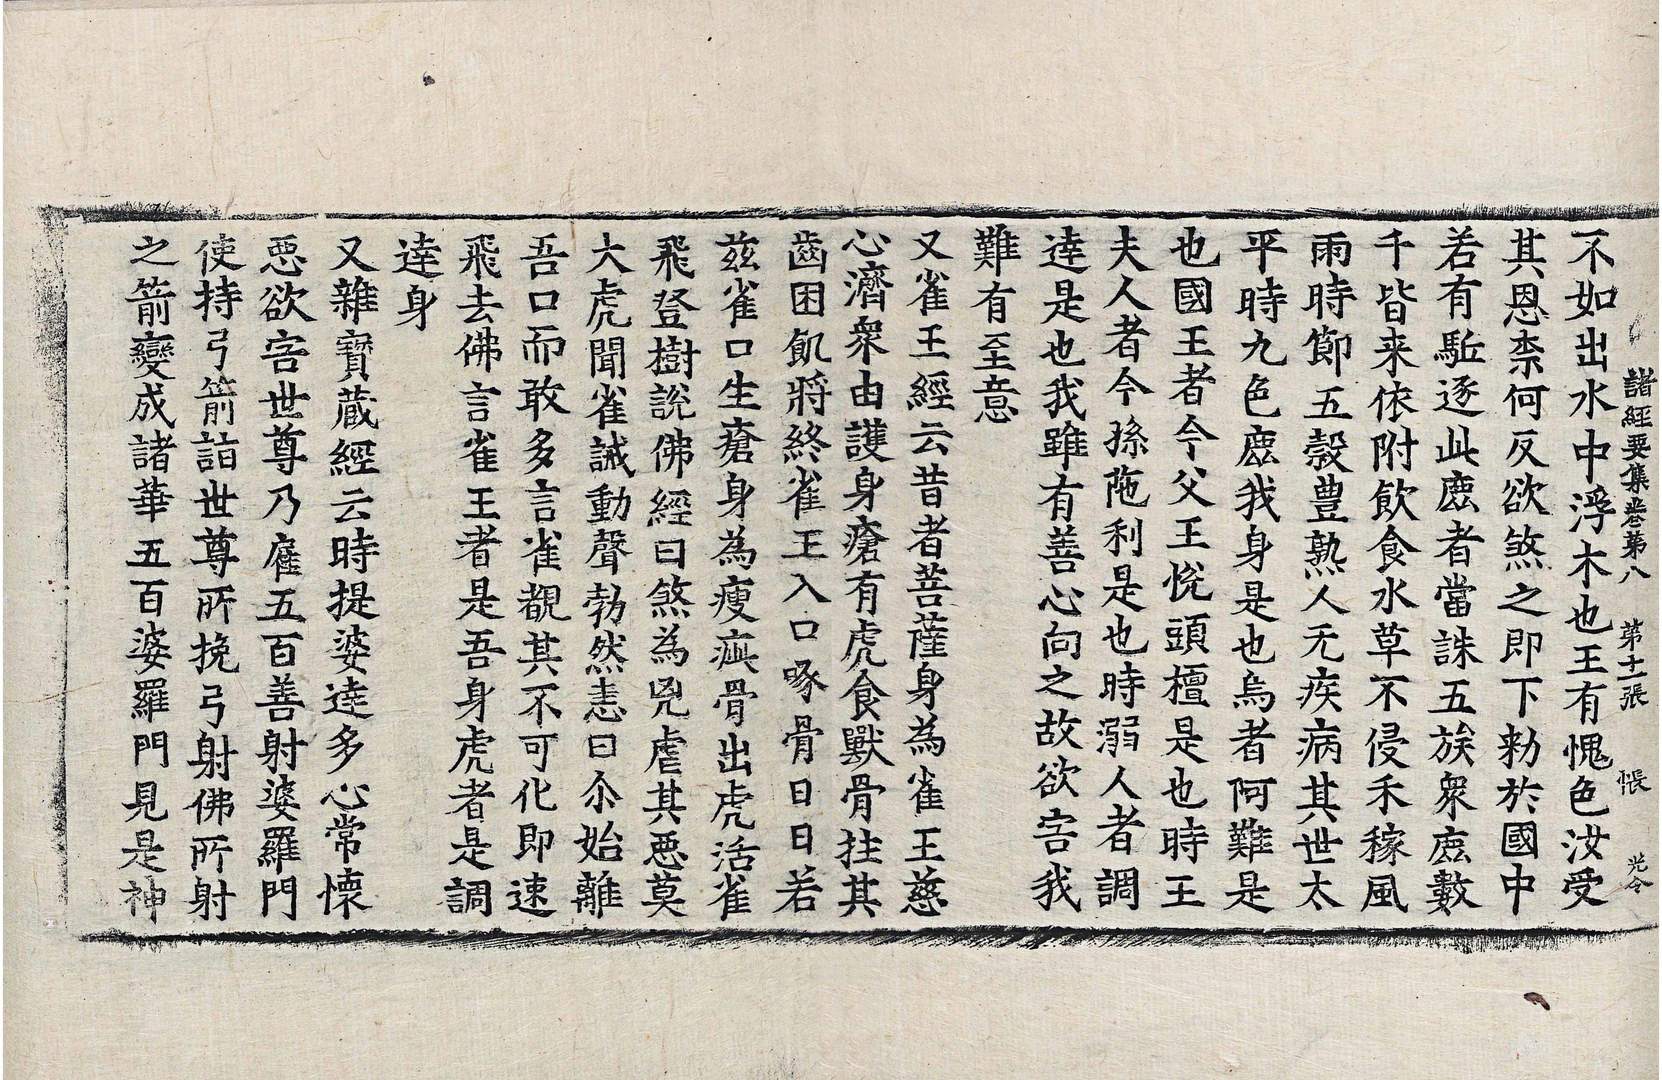 諸經要集卷第八　第十一張　帳　光令
不如出水中浮木也王有愧色汝受
其恩柰何反欲煞之即下勑於國中
若有駈逐此鹿者當誅五族衆鹿數
千皆来依附飲食水草不侵禾稼風
雨時節五穀豊熟人无疾病其世太
平時九色鹿我身是也烏者阿難是
也國王者今父王悅頭檀是也時王
夫人者今孫陁利是也時溺人者調
逹是也我雖有善心向之故欲害我
難有至意
又雀王經云昔者菩薩身為雀王慈
心濟衆由護身瘡有虎食獸骨拄其
齒困飢將終雀王入口啄骨日日若
兹雀口生瘡身為瘦疵骨出虎活雀
飛登樹說佛經曰煞為兇虐其惡莫
大虎聞雀誡動聲勃然恚曰尒始離
吾口而敢多言雀覩其不可化即速
飛去佛言雀王者是吾身虎者是調
逹身
又雜寳蔵經云時提婆逹多心常懷
惡欲害世尊乃雇五百善射婆羅門
使持弓箭詣世尊所挽弓射佛所射
之箭變成諸華五百婆羅門見是神